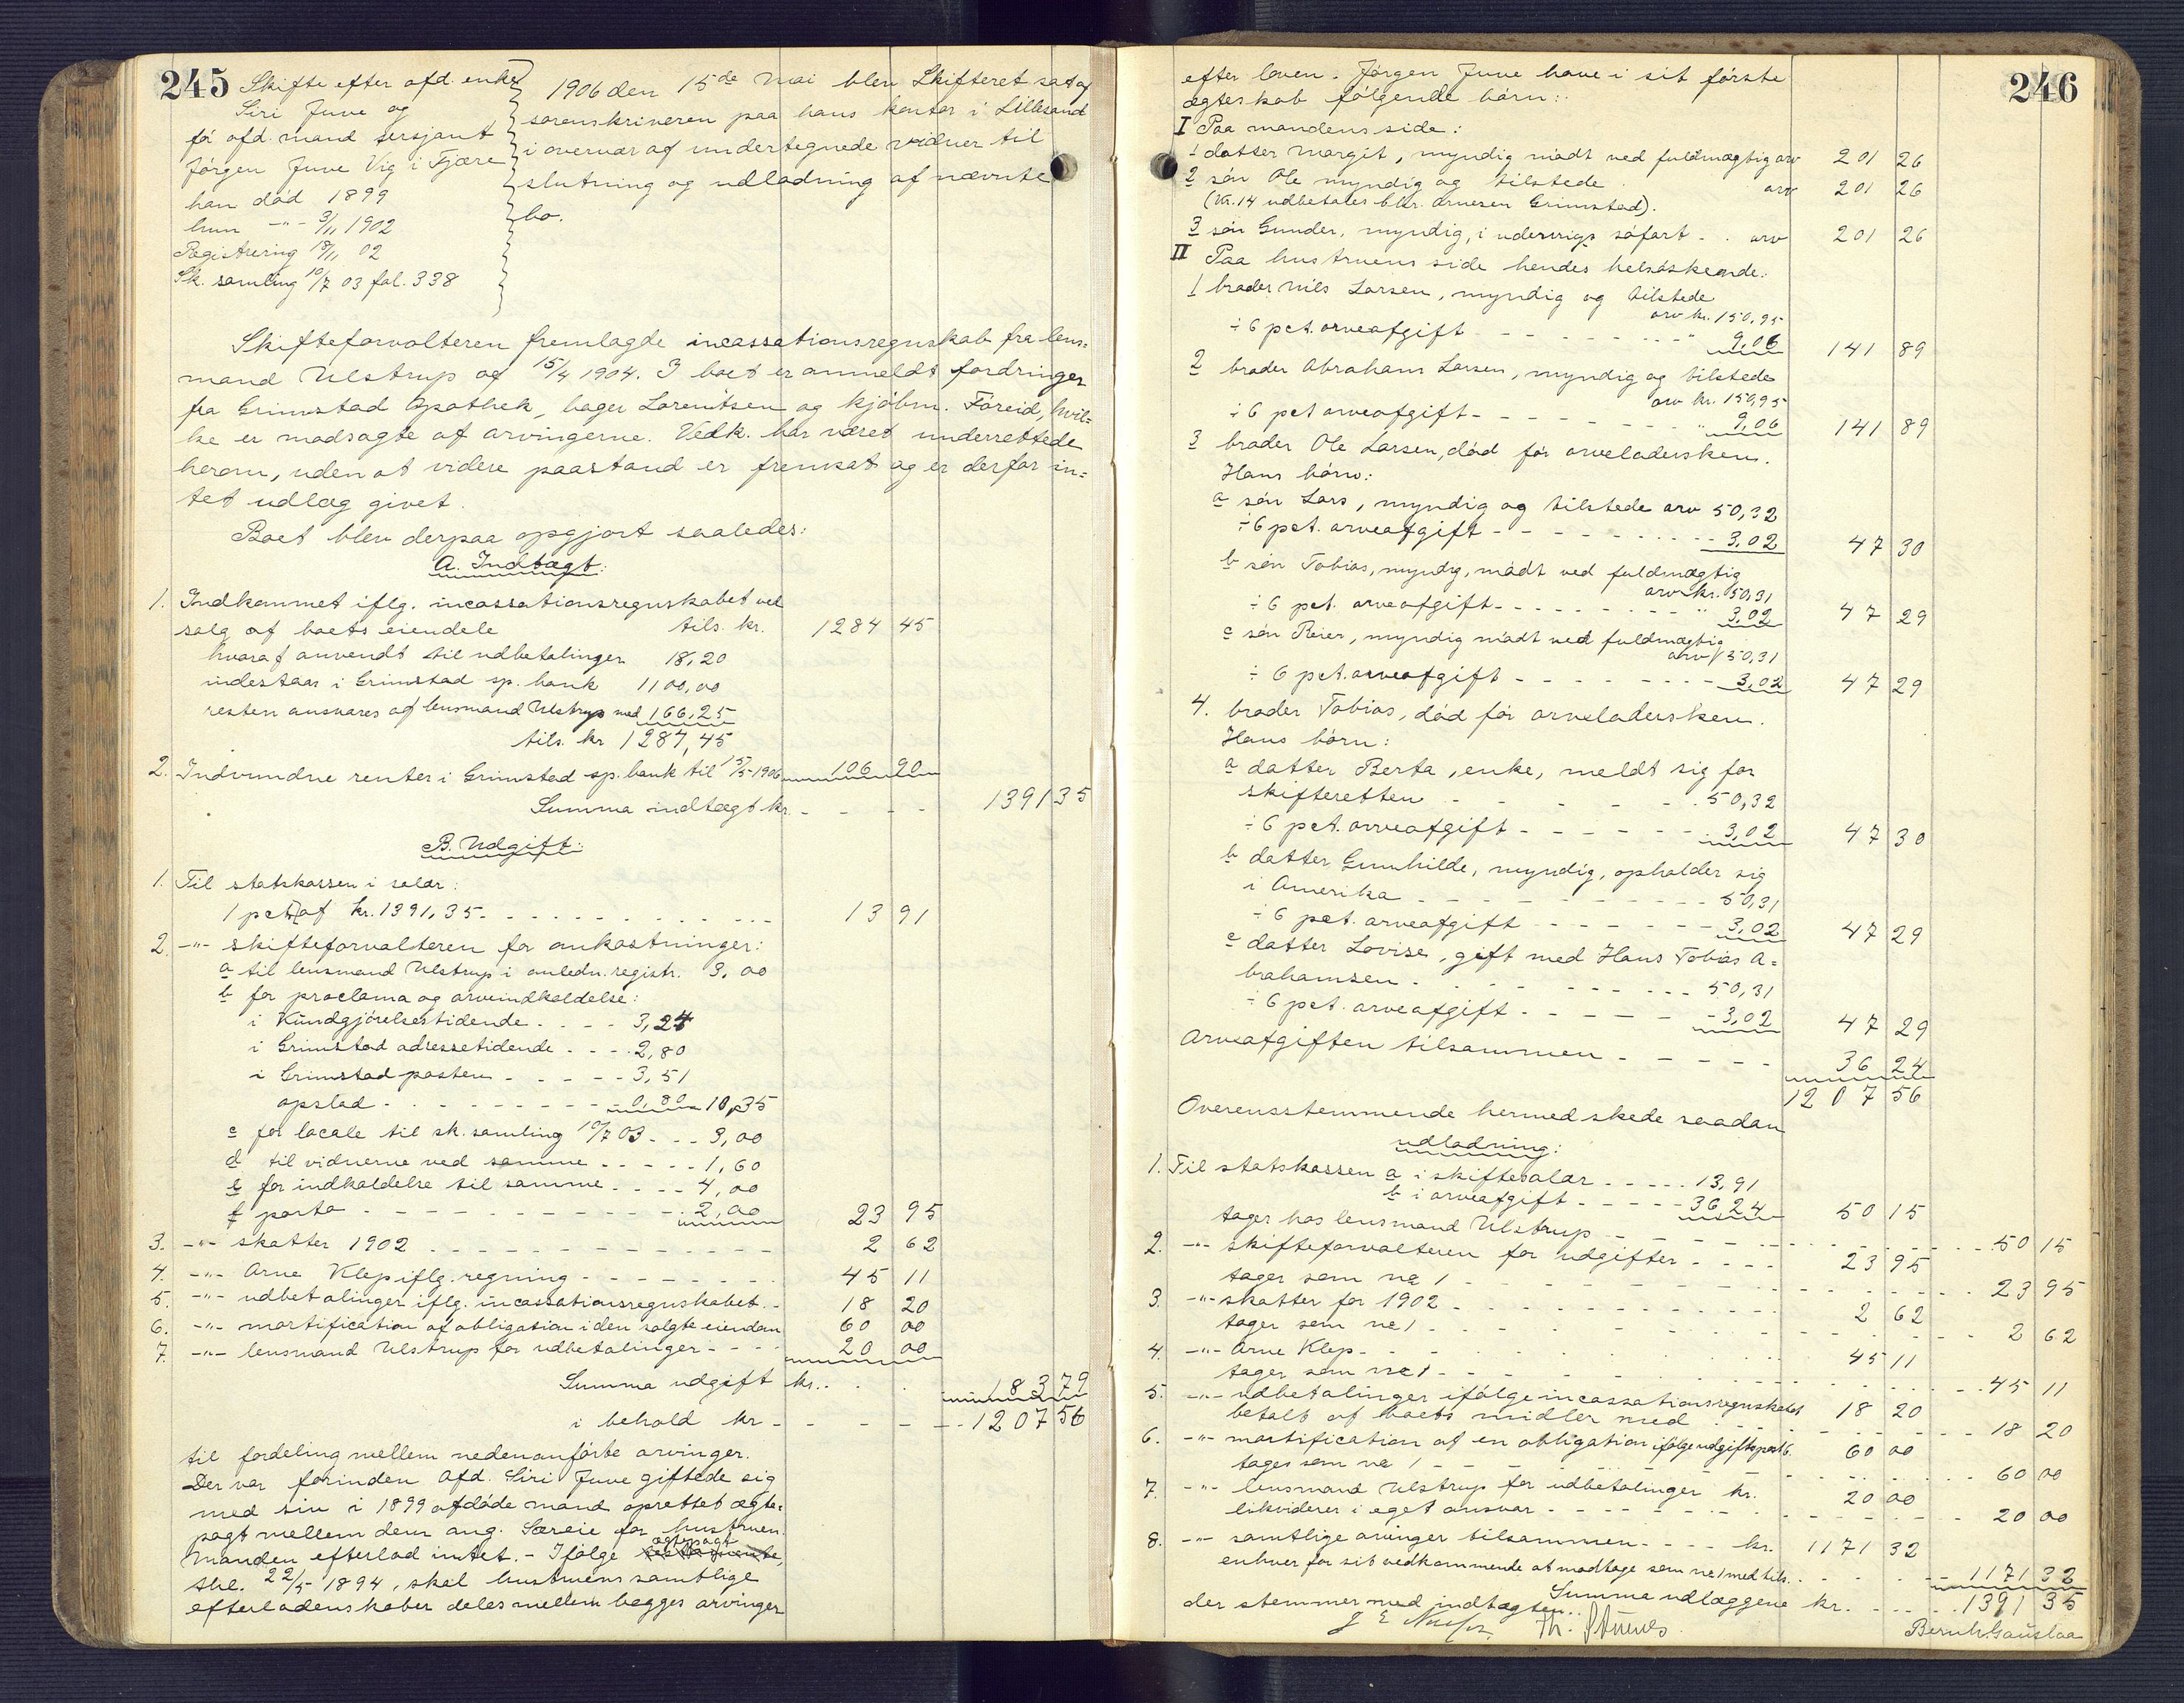 245
Skifte efter afd. enke
Siri Juve og
før afd. mand sersjant
Jørgen Juve Vig i Fjære
han død 1899
hun -"- 3/11 1902
Registrering 18/11 02
Sk. samling 10/7 03 fol. 338
1906 den 15de Mai blev Skifteret sat af
sorenskriveren paa hans kontor i Lillesand
i overvær af undertegnede vidner til
slutning og udlodning af nævnte
bo.
Skifteforvalteren fremlagde incassationsregnskab fra lens-
mand Ulstrup af 15/4 1904. I boet er anmeldt fordringer
fra Grimstad Apothek, bager Lorentsen og kjøbm. Føreid, hvil-
ke er modsagte af arvingerne. Vedk. har været underrettede
herom, uden at videre paastand er fremsat og er derfor in-
tet udlæg givet.
Boet blev derpaa opgjort saaledes:
A. Indtægt:
1. Indkommet iflg. incassationsregnskabet ved
salg af boets eiendele tils. kr. 1284 45
hvoraf anvendt til udbetalinger 18,20
indestaar i Grimstad sp. bank 1100,00
resten ansvares af lensmand Ulstrup med 166,25
tils. kr 1284,45
2. Indvundne renter i Grimstad sp. bank til 15/5-1906 106 90
Summa indtægt kr. 1391 35
B. Udgift:
1. Til statskassen i salær:
1 pct af kr. 1391,35 13 91
2. -"- skifteforvalteren for omkostninger:
a til lensmand Ulstrup i anledn. registr. 3,00
b for proclama og arveindkaldelse:
i Kundgjørelsestidende 3,24
i Grimstad adressetidende 2,80
i Grimstadposten 3,51
opslad 0,80 10,35
c for locale til sk. samling 10/7 03 3,00
d til vidnerne ved samme 1,60
e for indkaldelse til samme 4,00
f porto 2,00 23 95
3. -"- skatter 1902 2 62
4. -"- Arne Klep iflg. regning 45 11
5. -"- udbetalinger iflg. incassationsregnskabet 18 20
6. -"- mortification af obligation i den solgte eiendom 60 00
7. -"- lensmand Ulstrup for udbetalinger 20 00
Summa udgift kr. 183 79
i behold kr 1207 56
til fordeling mellem nedenanførte arvinger.
Der var forinden Afd. Siri Juve giftede sig
med sin i 1899 afdøde mand oprettet ægte-
pagt mellem dem ang. Særeie for hustruen.
Manden efterlod intet. - Ifølge ægtepagt
thl. 22/5 1894, skal hustruens samtlige
efterladenskaber deles mellem begges arvinger
246
efter loven. Jørgen Juve have i sit første
ægteskab følgende børn:
I Paa mandens side:
1 datter Margit, myndig mødt ved fuldmægtig arv 201 26
2 søn Ole myndig og tilstede arv 201 26
(Kr. 14 udbetales bkr. Arnesen Grimstad).
3 søn Gunder, myndig, i udenrigs søfart arv 201 26
II Paa hustruens side hendes helsøskende:
1 broder Nils Larsen, myndig og tilstede
arv kr. 150,95
÷ 6 pct. arveafgift " 9,06 141 89
2 broder Abraham Larsen, myndig og tilstede
arv kr. 150,95
÷ 6 pct arveafgift " 9,06 141 89
3 broder Ole Larsen, død før arveladersken.
Hans børn:
a søn Lars, myndig og tilstede arv 50,32
÷ 6 pct. arveafgift 3,02 47 30
b søn Tobias, myndig, mødt ved fuldmægtig
arv kr. 50,31
÷ 6 pct. arveafgift " 3,02 47 29
c søn Reier, myndig mødt ved fuldmægtig
arv 50,31
÷ 6 pct. arveafgift 3,02 47 29
4. broder Tobias, død før arveladersken.
Hans børn:
a datter Berta, enke, meldt sig for
skifteretten 50,32
÷ 6 pct. arveafgift 3,02 47 30
b datter Gunhilde, myndig, opholder sig
i Amerika 50,31
÷ 6 pct. arveafgift 3,02 47 29
c datter Lovise, gift med Hans Tobias A-
brahamsen 50,31
÷ 6 pct. arveafgift 3,02 47 29
Arveafgiften tilsammen 36 24
1207 56
Overensstemmende hermed skede saadan
udlodning:
1. Til statskassen a i skiftesalær 13,91
b i arveafgift 36,24 50 15
tager hos lensmand Ulstrup 50 15
2. -"- skifteforvalteren for udgifter 23 95
tager som no 1 23 95
3. -"- skatter for 1902 2 62
tager som no 1 2 62
4. -"- Arne Klep 45 11
tager som no 1 45 11
5. -"- udbetalinger ifølge incassationsregnskabet 18 20
betalt af boets midler med 18 20
6. -"- mortification af en obligation ifølge udgiftspost 6. 60 00
tages som no 1 60 00
7. -"- lensmand Ulstrup for udbetalinger kr. 20 00
likviderer i eget ansvar 20 00
8. -"- samtlige arvinger tilsammen kr. 1171 32
enhver for sit vedkommende at modtage som no 1 med tils. 1171 32
Summa udlæggene kr. 1391 35
der stemmer med indtægten.
Bernh. Gauslaa